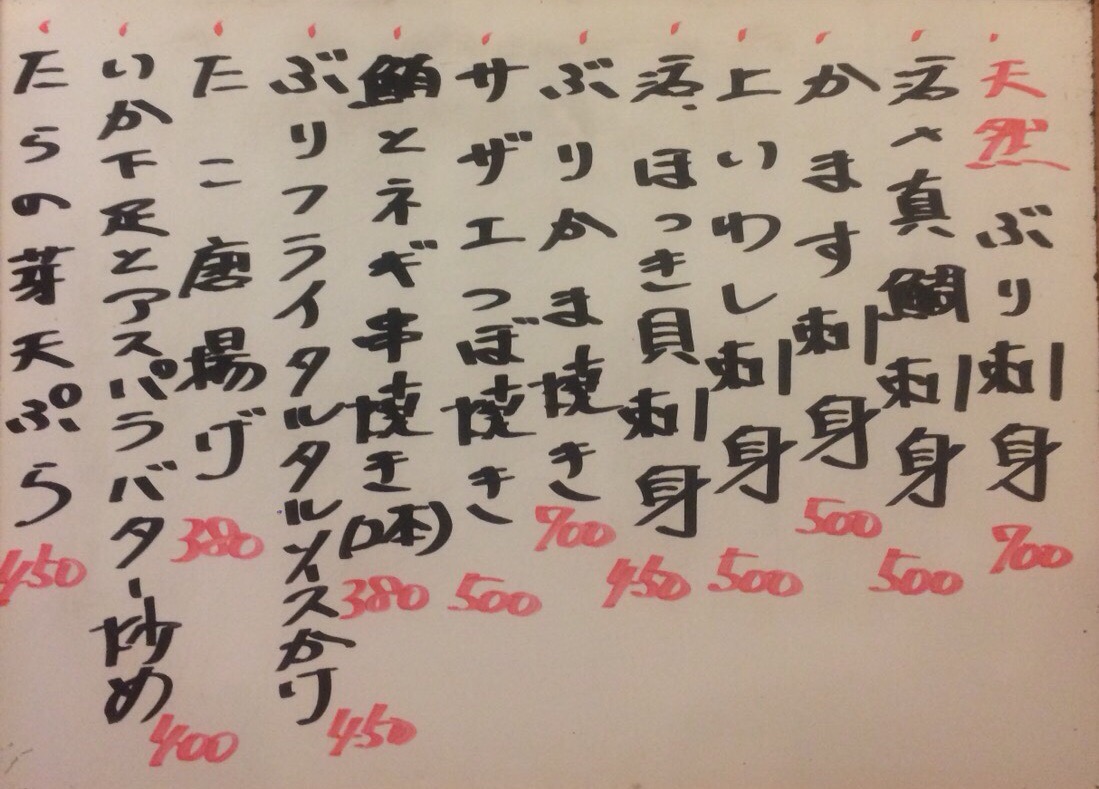 天然ぶり刺身 700
活〆真鯛刺身 500
かます刺身 500
上いわし刺身 500
活ほっき貝刺身 450
ぶりかま焼き 700
サザエつぼ焼き 500
鮪とネギ串焼き(2本) 380
ぶりフライタルタルソースかけ 450
たこ唐揚げ 380
いか下足とアスパラバター炒め 400
たらの芽天ぷら 450